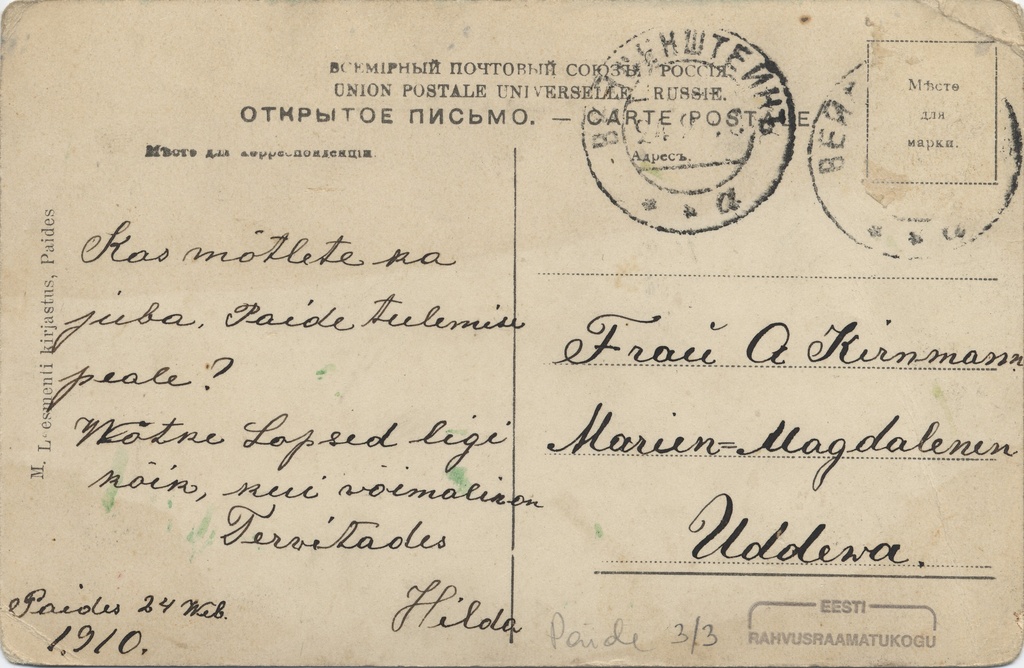 ВСЕМІРНЫЙ ПОЧТОВЫЙ СОЮЗЪ. РОССІЯ.
UNION POSTALE UNIVERSELLE. RUSSIE.
ОТКРЫТОЕ ПИСЬМО. — CARTE POSTALE
Мѣсто для корреспонденціи.
Адресъ.
Мѣсто
для
марки.
ВЕЙСЕНШТЕЙНЪ
* * а
ВЕЙ
* * а
M. Leesmenti kirjastus, Paides
Kas mõtlete ka
juba, Paide tulemise
peale?
Wõtke Lapsed ligi
kõik, kui võimalik on
Tervitades
Hilda
Paides 24 Web.
1910.
Frau A Kirnmann
Marien-Magdalenen
Uddewa.
Paide 3/3
EESTI
RAHVUSRAAMATUKOGU